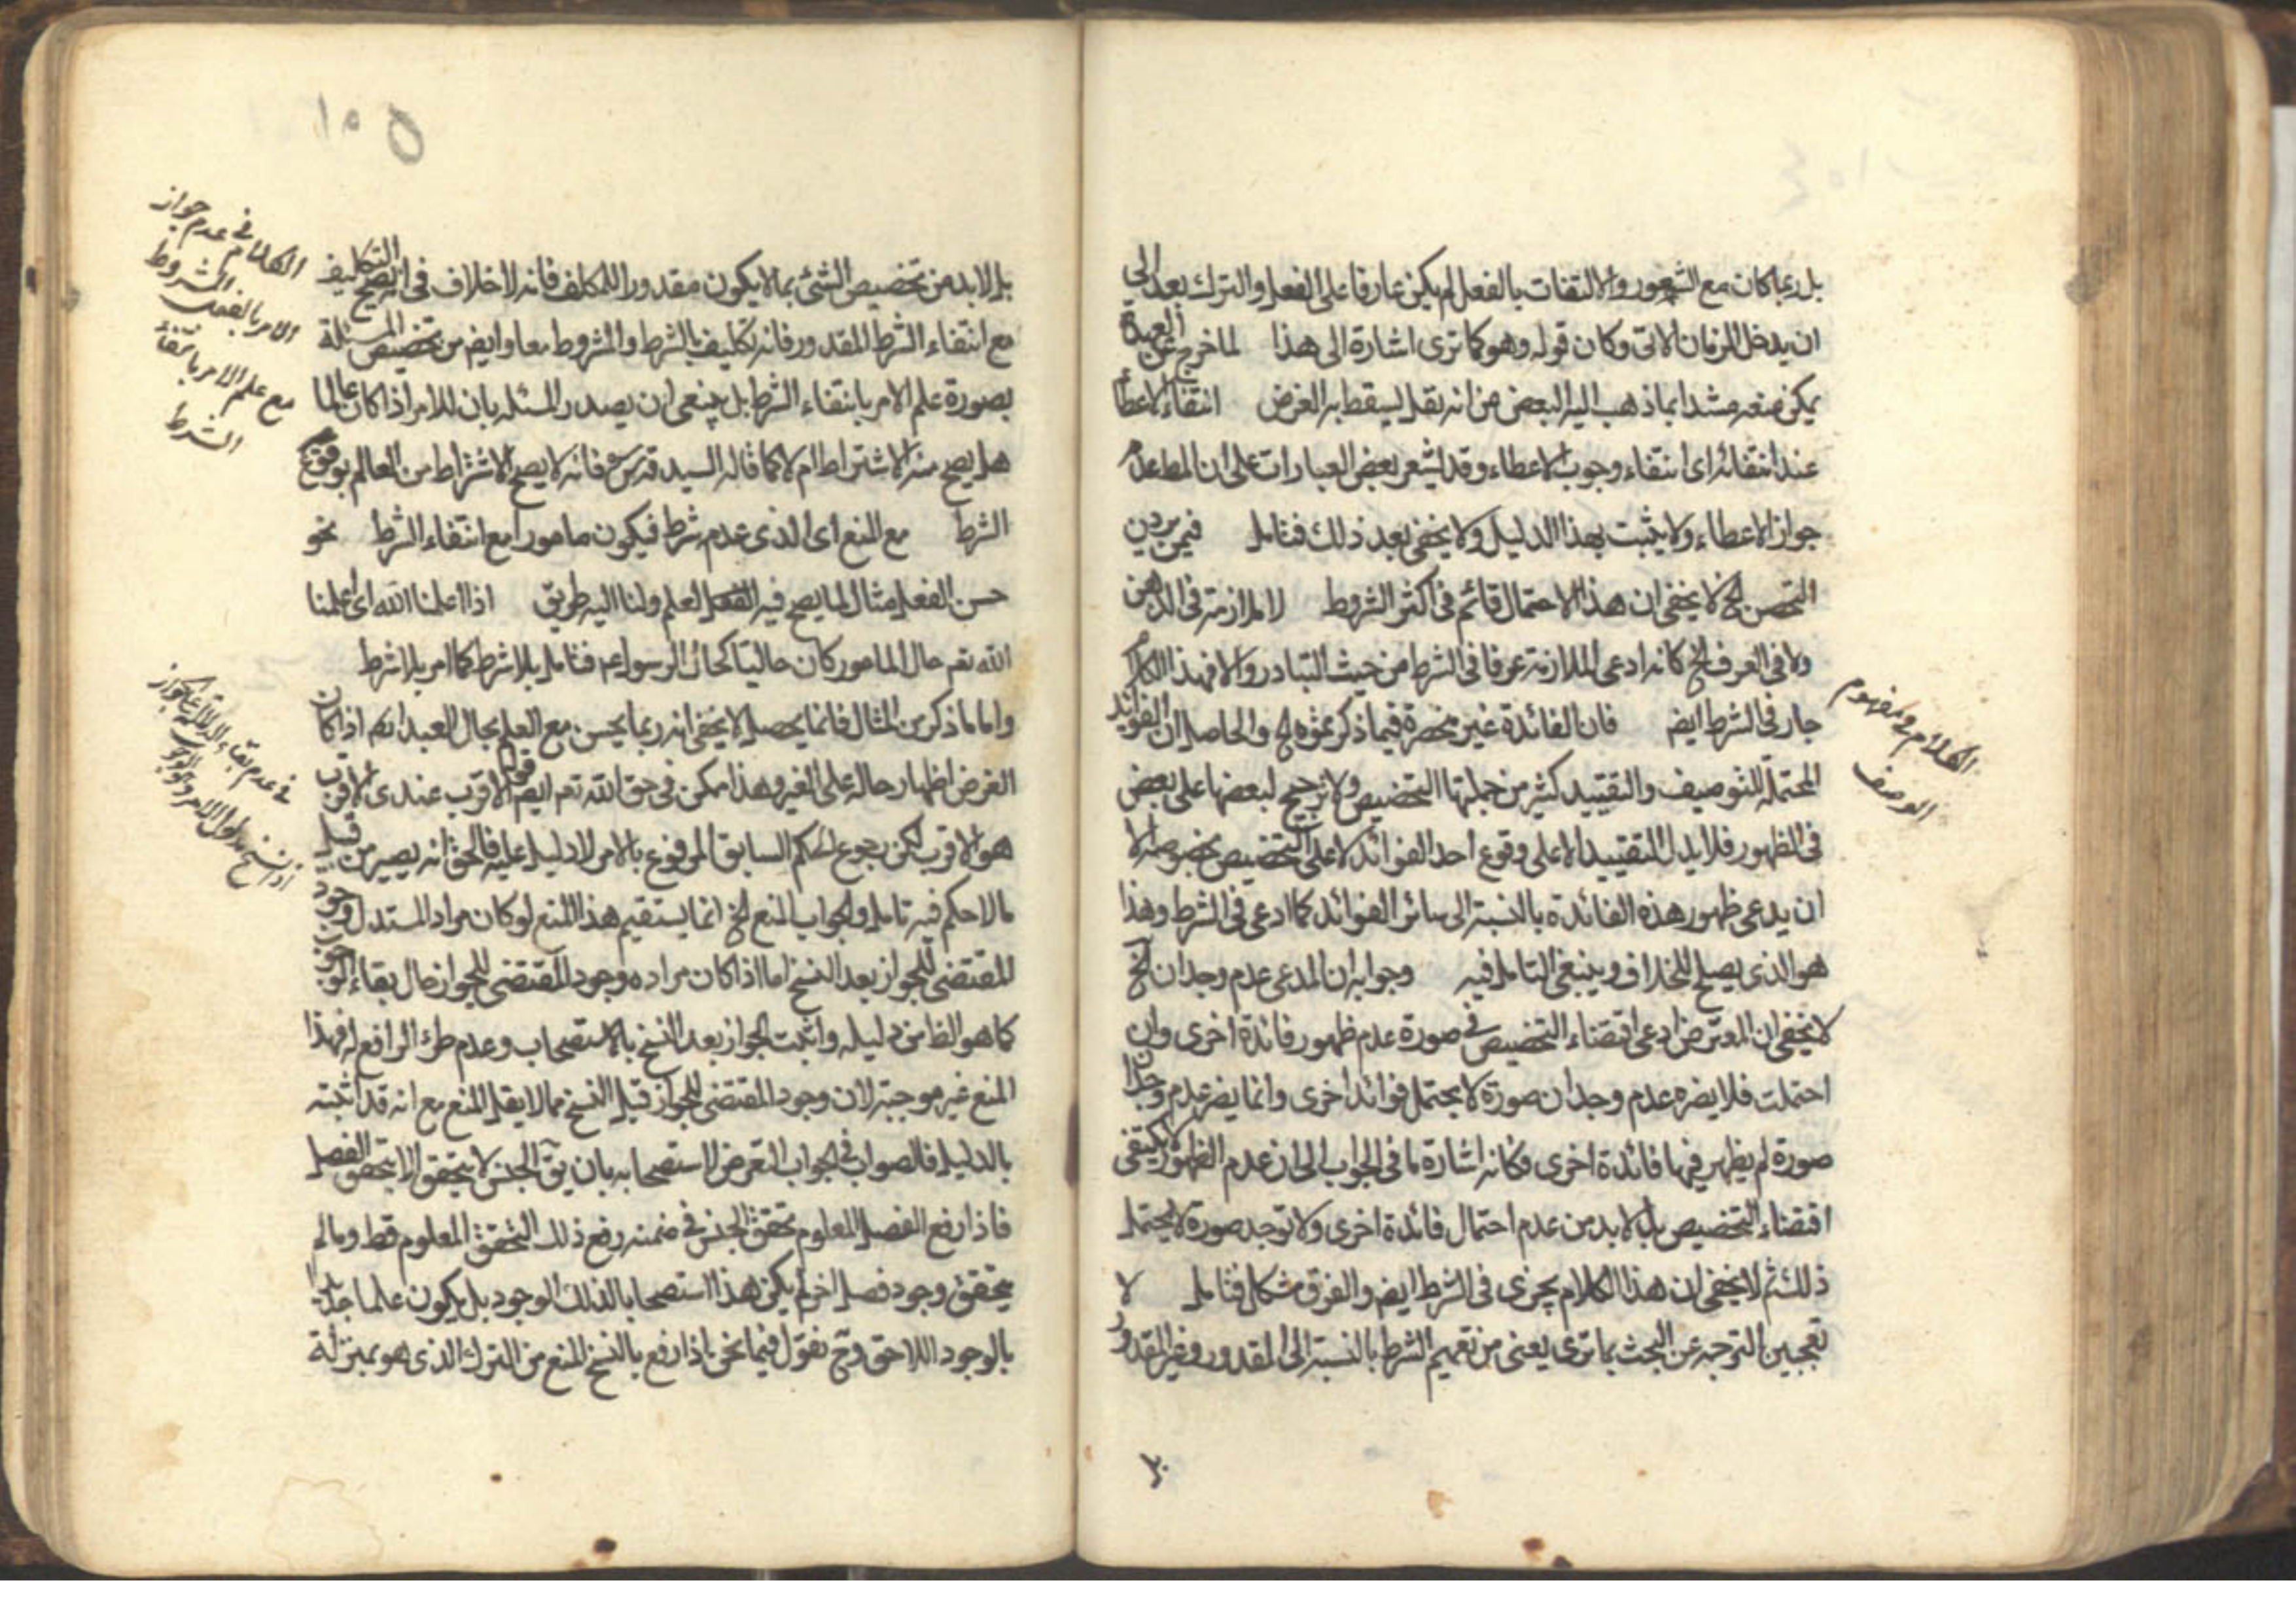 بل ربما كان مع الشعور والالتفات بالفعل لم يكن عارفا على الفعل والترك بعد الى
ان يدخل الزمان الاتى وكان قوله وهو كما ترى اشارة الى هذا لما خرج عن العهدة
يمكن منعه مستندا بما ذهب اليه البعض من انه نقل يسقط به الغرض انتفاء الاعطاء
عند انتفائه اى انتفاء وجوب الاعطاء وقد اشعر بعض العبارات على ان المط عدم
جواز الاعطاء ولا يثبت بهذا الدليل ولا يخفى بعد ذلك فتامل فيمن يردن
التحصن الخ لا يخفى ان هذا الاحتمال قائم فى اكثر الشروط لا ملازمة فى الذهن
ولا فى العرف الخ كانه ادعى الملازمة عرفا فى الشرط من حيث التبادر والا فهذا الكلام
جار فى الشرط ايضا فان الفائدة غير منحصرة فيما ذكرتموه الخ والحاصل ان الفوائد
المحتملة للتوصيف والتقييد كثير من جملتها التخصيص ولا ترجيح لبعضها على بعض
فى الظهور فلا يدل التقييد الا على وقوع احد الفوائد لا على التخصيص بخصوصه الا
ان يدعى ظهور هذه الفائدة بالنسبة الى سائر الفوائد كما ادعى فى الشرط وهذا
هو الذى يصلح للخلاف وينبغى التامل فيه وجوابه ان المدعى عدم وجدان الخ
لا يخفى ان المعترض ادعى اقتضاء التخصيص فى صورة عدم ظهور فائدة اخرى وان
احتملت فلا يضره عدم وجدان صورة لا يحتمل فوائد اخرى وانما يضر عدم وجدان
صورة لم يظهر فيها فائدة اخرى وكانه اشارة ما فى الجواب الى ان عدم الظهور لا يكتفى
اقتضاء التخصيص بل لا بد من عدم احتمال فائدة اخرى ولا توجد صورة لا يحتمل
ذلك ثم لا يخفى ان هذا الكلام يجرى فى الشرط ايضا والفرق مشكل فتامل لا
التوجه عن البحث بما ترى يعنى من تعميم الشرط بالنسبة الى المقدور وغير المقدور
الكلام فى مفهوم
الوصف
١٥٥
بل لا بد من تخصيص الشئ بما لا يكون مقدورا للمكلف فانه لا خلاف فى انه يصح التكليف
مع انتفاء الشرط المقدور فانه تكليف بالشرط والمشروط معا وايضا من تخصيص المسئلة
بصورة علم الامر بانتفاء الشرط بل ينبغى ان يصدر المسئلة بان للامر اذا كان عالما
هل يصح منه الاشتراط ام لا كما قاله السيد قدس سره فانه لا يصح الاشتراط من العالم بوقوع
الشرط مع المنع اى الذى عدم شرط فيكون مامورا مع انتفاء الشرط نحو
حسن الفعل مثال لما يصح فيه العلم ولنا اليه طريق اذا اعلمنا الله اى اعلمنا
الله تعم حال المامور كان حاليا كحال الرسول عم فتامل بلا شرط كما امر بلا شرط
واما ما ذكر من المثال فانما يحصل لا يخفى انه ربما يحسن مع العلم بحال العبد ايضا اذا كان
الغرض اظهار حاله على الغير وهذا ممكن فى حق الله تعم ايضا قوله الاقرب عندى الاقرب
هو الاقرب لكن رجوع الحكم السابق المرفوع بالامر لا دليل عليه فالحق انه يصير من قبيل
ما لا حكم فيه تامل والجواب المنع الخ انما يستقيم هذا المنع لو كان مراد المستدل وجود
المقتضى للجواز بعد النسخ اما اذا كان مراده وجود المقتضى للجواز حال بقاء الوجوب
كما هو الظ من دليله واثبت الجواز بعد النسخ بالاستصحاب وعدم طرء الرافع له فهذا
المنع غير موجه لان وجود المقتضى للجواز قبل النسخ مما لا يقبل المنع مع انه قد اثبته
بالدليل فالصواب فى الجواب التعرض لاستصحابه بان يق الجنس لا يتحقق الا بتحقق الفصل
فاذا رفع الفصل المعلوم تحقق الجنس فى ضمنه رفع ذلك التحقق المعلوم قط وما لم
يتحقق وجود فصل اخر لم يكن هذا استصحابا لذلك الوجود بل يكون علما جديدا
بالوجود اللاحق وح نقول فيما نحن اذا رفع بالنسخ المنع من الترك الذى هو بمنزلة
الكلام فى عدم جواز
الامر بالفعل المشروط
مع علم الامر بانتفاء
الشرط
فى عدم بقاء الدلالة على الجواز
اذا نسخ مدلول الامر وهو الوجوب